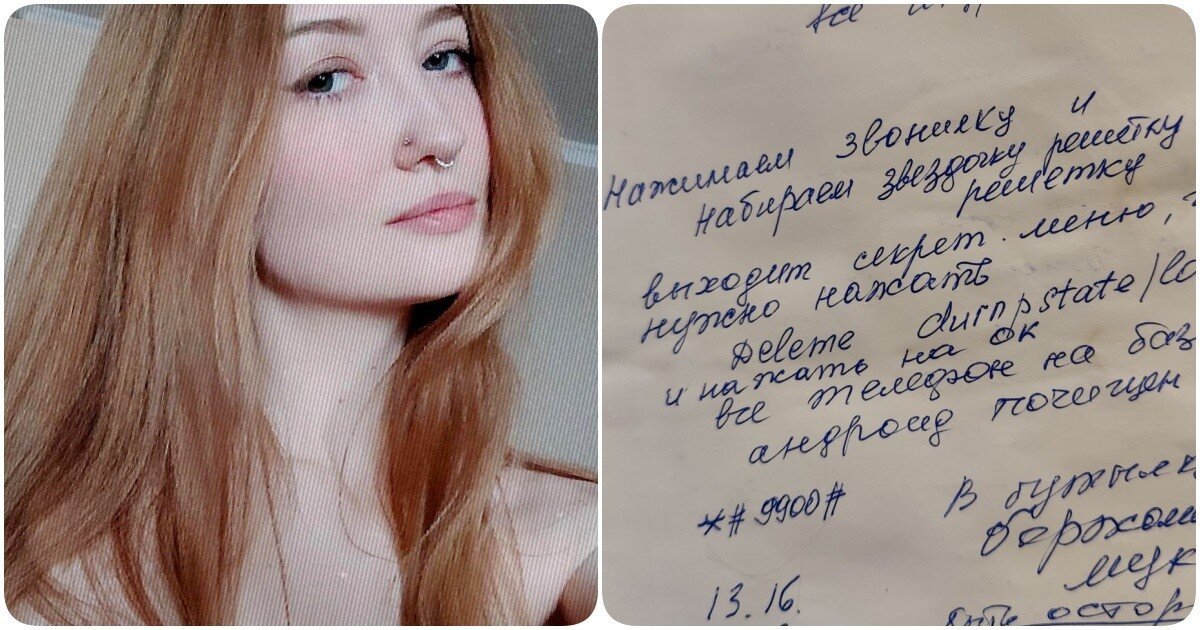 все
Нажимаем звонилку и
набираем звездочку решетку
решетку
выходит секрет. меню,
нужно нажать
Delete dumpstate/lo
и нажать на ок
все телефон на баз
андроид почищен
*#9900#
В бутылк
боржоми
13.16.
быть остор